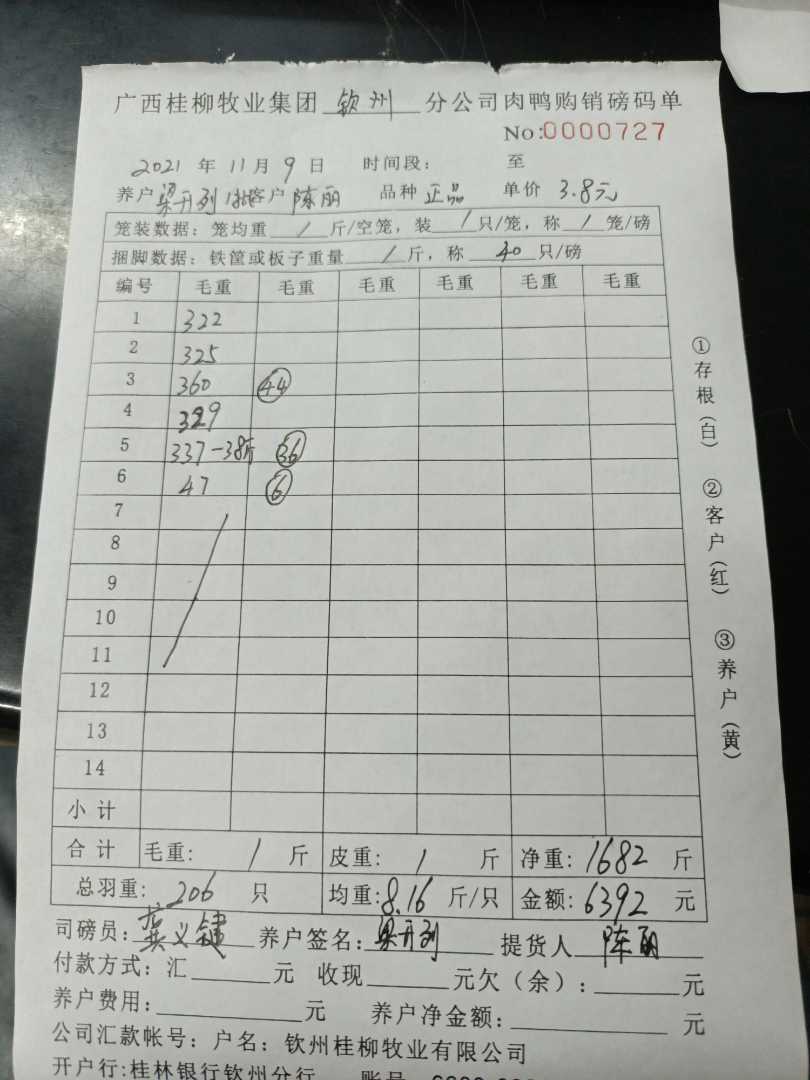 广西桂柳牧业集团 钦州 分公司肉鸭购销磅码单
No:0000727
2021 年 11 月 9 日 时间段: 至
养户 梁开列 1批 客户 陈丽 品种 正品 单价 3.8元
笼装数据: 笼均重 / 斤/空笼, 装 / 只/笼, 称 / 笼/磅
捆脚数据: 铁筐或板子重量 / 斤, 称 40 只/磅
编号 毛重 毛重 毛重 毛重 毛重 毛重
1 322
2 325
3 360 44
4 329
5 337-38斤 36
6 47 6
7
8
9
10
11
12
13
14
小计
合计 毛重: / 斤 皮重: / 斤 净重: 1682 斤
总羽重: 206 只 均重: 8.16 斤/只 金额: 6392 元
司磅员: 龚义键 养户签名: 梁开列 提货人 陈丽
付款方式: 汇 元 收现 元欠(余): 元
养户费用: 元 养户净金额: 元
公司汇款帐号: 户名: 钦州桂柳牧业有限公司
开户行:桂林银行钦州分行
①存根(白) ②客户(红) ③养户(黄)